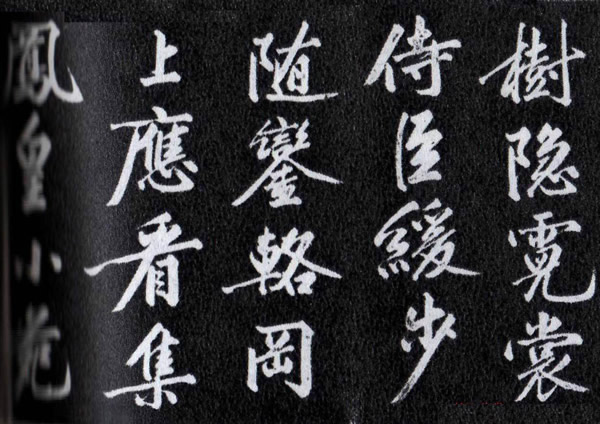 樹隐霓裳
侍臣緩步
随鑾輅岡
上應看集
鳳皇小苑